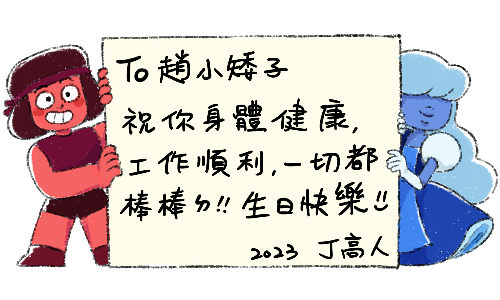 To 趙小矮子
祝你身體健康,
工作順利,一切都
棒棒ㄉ!! 生日快樂!!
2023 丁高人